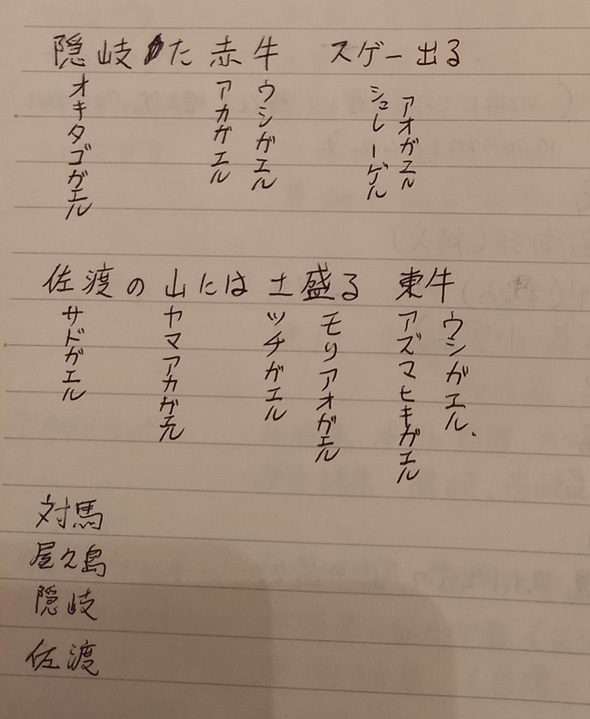 隠岐た赤牛 スゲー出る
オキタゴガエル
アカガエル
ウシガエル
シュレーゲル
アオガエル
佐渡の山には土盛る 東牛
サドガエル
ヤマアカガエル
ツチガエル
モリアオガエル
アズマヒキガエル
ウシガエル.
対馬
屋久島
隠岐
佐渡